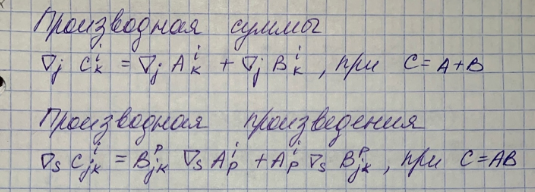 Производная суммы
∇j C^i_k = ∇j A^i_k + ∇j B^i_k, при C=A+B
Производная произведения
∇s C^i_jk = B^p_jk ∇s A^i_p + A^i_p ∇s B^p_jk, при C=AB